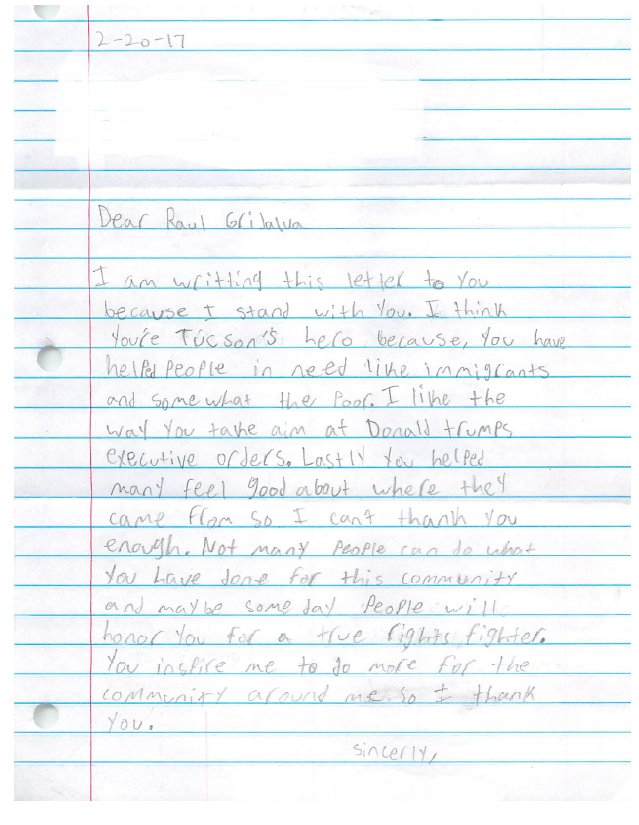 2-20-17
Dear Raul Grijalva
I am writting this letter to you
because I stand with you. I think
you're Tucson's hero because, you have
helped people in need like immigrants
and somewhat the poor. I like the
way you take aim at Donald trumps
executive orders. Lastly you helped
many feel good about where they
came from so I can't thank you
enough. Not many people can do what
you have done for this community
and maybe some day people will
honor you for a true rights fighter.
You inspire me to do more for the
community around me. so I thank
you.
sincerly,